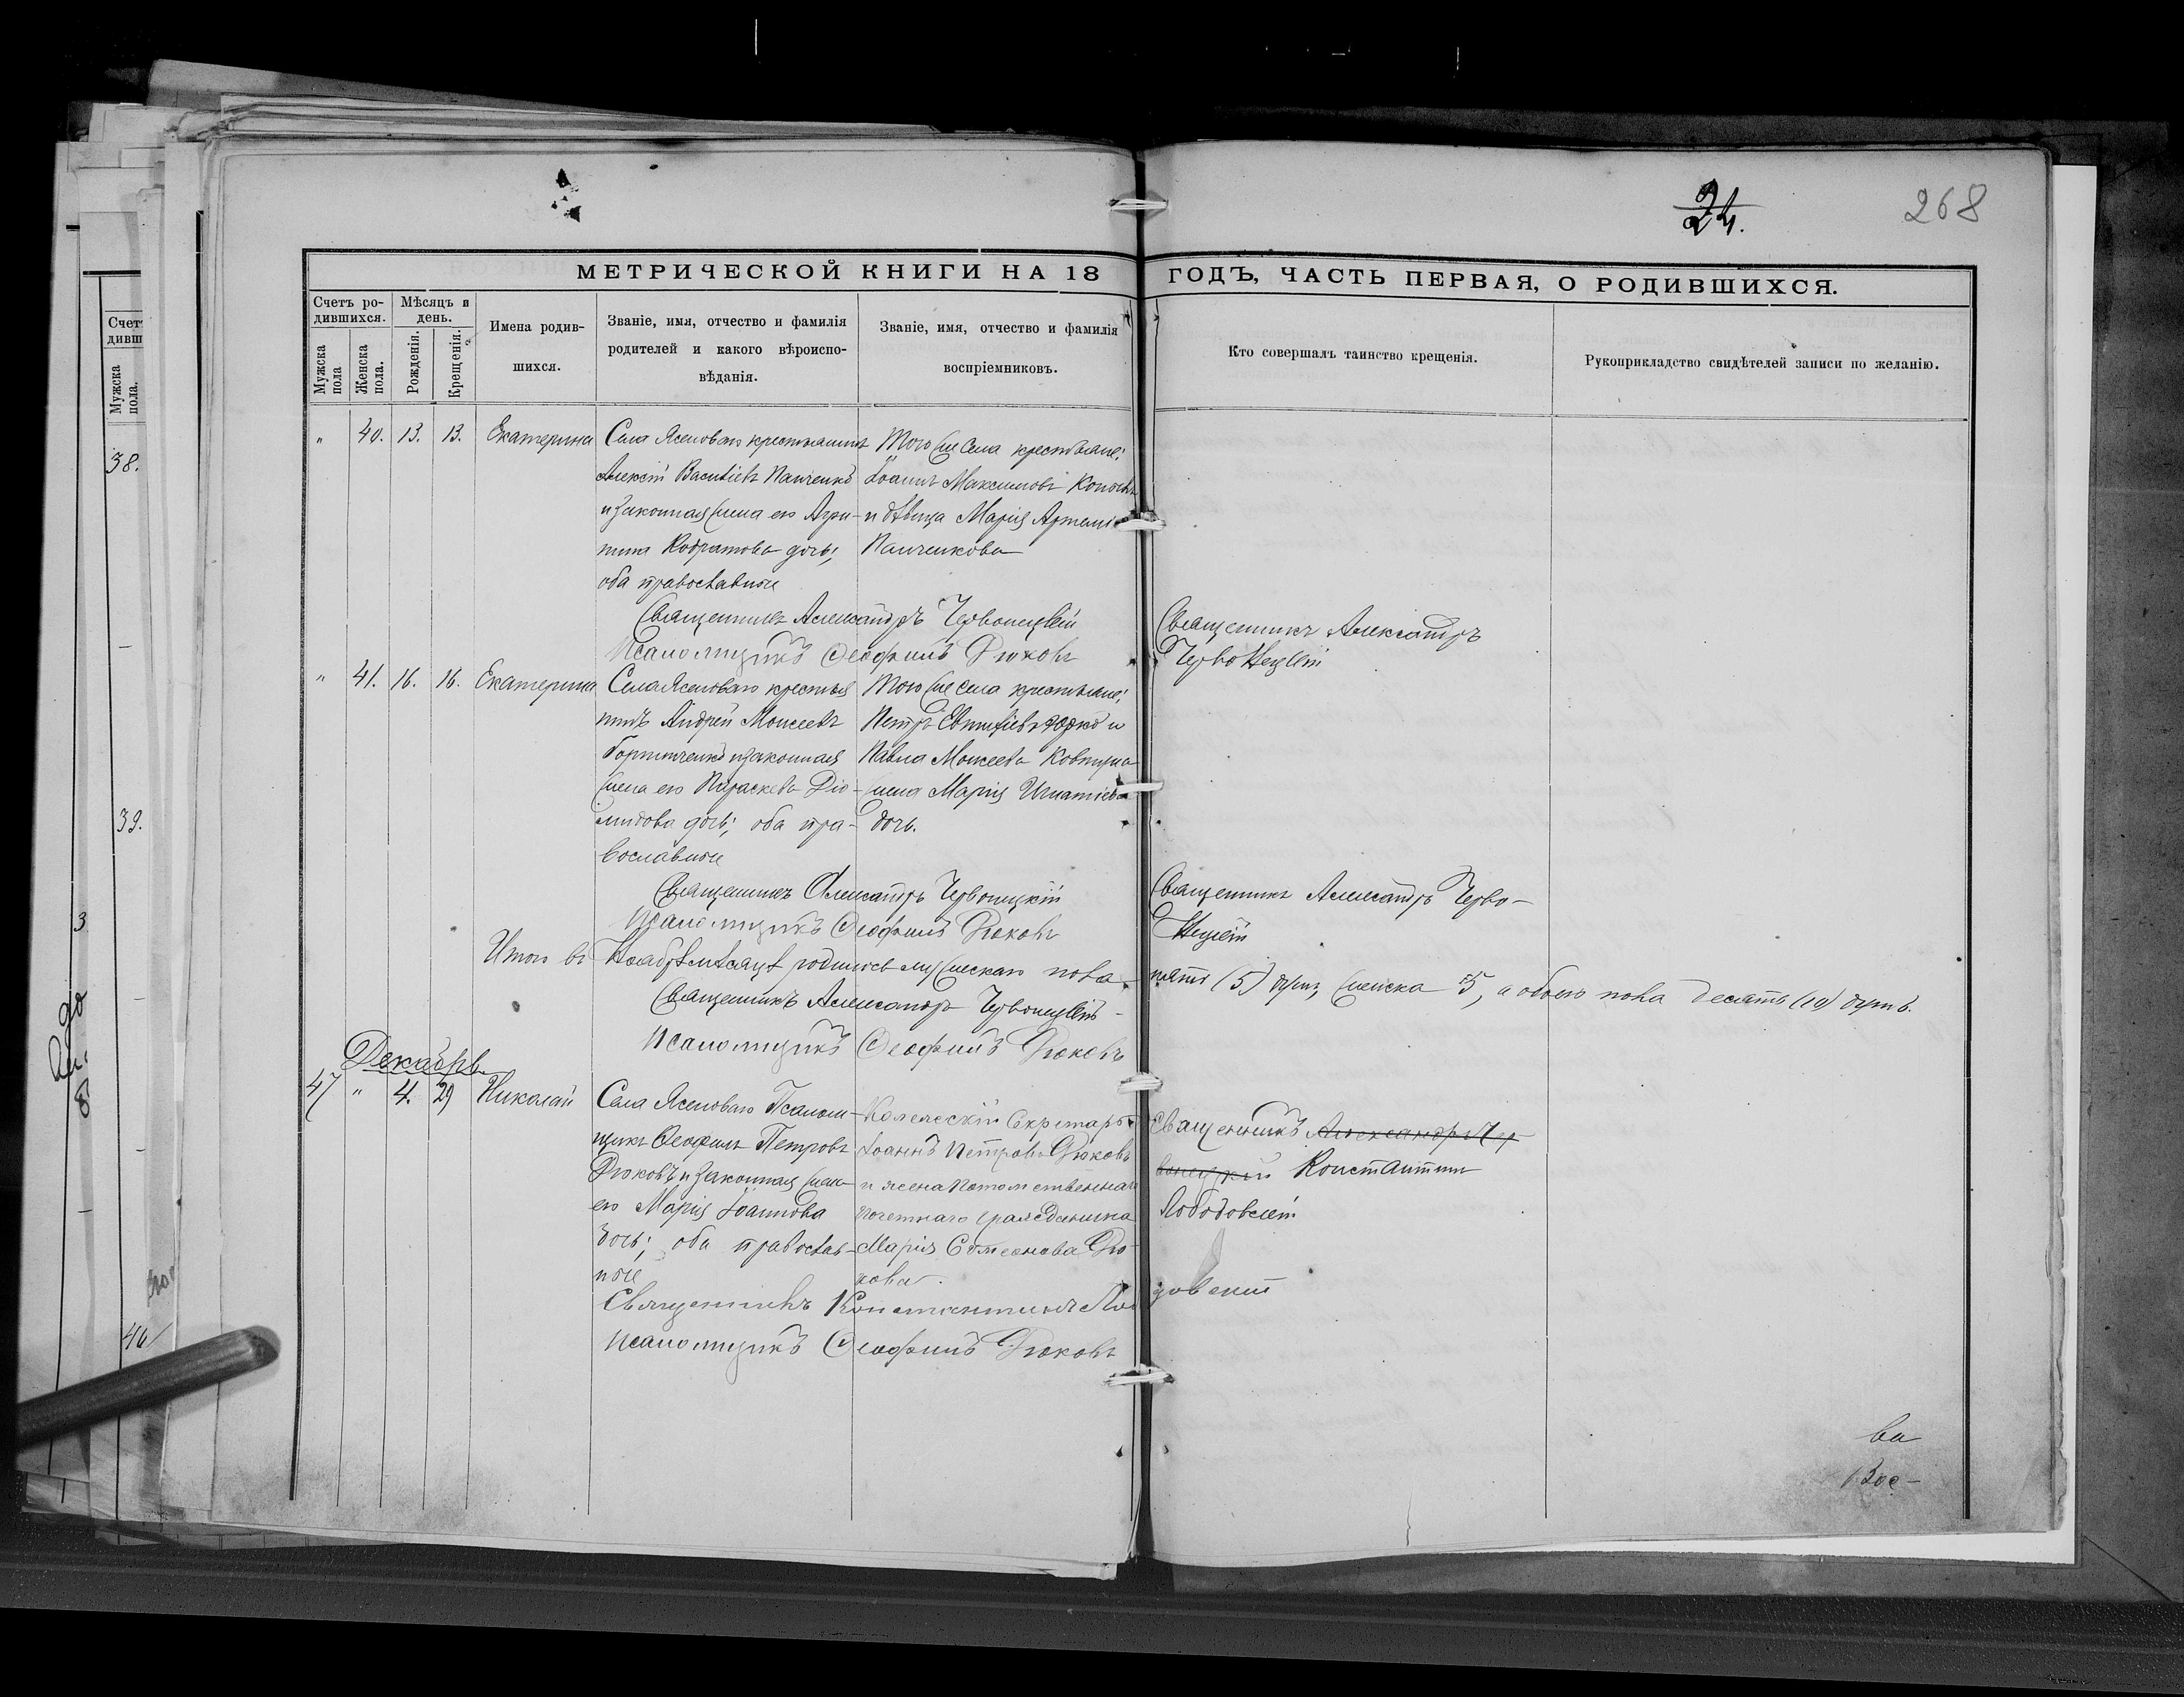 24.
268
МЕТРИЧЕСКОЙ КНИГИ НА 18 ГОДЪ, ЧАСТЬ ПЕРВАЯ, О РОДИВШИХСЯ.
Счетъ ро-
дившихся.
Мужска
пола
Женска
пола.
Мѣсяцъ и
день.
Рожденія.
Крещенія.
Имена родив-
шихся.
Званіе, имя, отчество и фамилія
родителей и какого вѣроиспо-
вѣданія.
Званіе, имя, отчество и фамилія
воспріемниковъ.
Кто совершалъ таинство крещенія.
Рукоприкладство свидѣтелей записи по желанію.
Счет
дивш
Мужска
пола.
38.
39.
3
40
" 40. 13. 13. Екатерина
Села Ясеноваго крестьянинъ
Алексій Василіевъ Панченко
и законная жена его Агри-
пина Кодратова дочь;
оба православные
Того же села крестьяне:
Іоаннъ Максимовъ
и дѣвица Марія
Панченкова
Священникъ Александръ Червонецкій
Псаломщикъ Ѳеофилъ Рюковъ
Священникъ Александръ
Червонецкій
" 41. 16. 16. Екатерина
Села Ясеноваго крестья
нинъ Андрей Моисеевъ
и законная
жена его Параскева Діо-
мидова дочь; оба пра-
вославные
Того же села крестьяне:
Петръ и
Павла Моисеева
жена Марія Игнатіева
дочь.
Священникъ Александръ Червонецкій
Псаломщикъ Ѳеофилъ Рюковъ
Священникъ Александръ Черво-
нецкій
Итого въ Ноябрѣ мѣсяцѣ родилось мужескаго пола пять (5) душъ, женска 5, а обоего пола десять (10) душъ.
Священникъ Александръ Червонецкій
Псаломщикъ Ѳеофилъ Рюковъ
Декабрь
47 " 4. 29 Николай
Села Ясеноваго Псалом-
щикъ Ѳеофилъ Петровъ
Рюковъ и законная жена
его Марія Іоаннова
дочь; оба православ-
ные
Колежескій Секретарь
Іоаннъ Петровъ Рюковъ
и жена Потомственнаго
почетнаго гражданина
Марія Симеонова Рю-
кова.
Священникъ Александръ Чер
вонецкій Константинъ
Лободовскій
Священникъ Константинъ Лободовскій
Псаломщикъ Ѳеофилъ Рюковъ